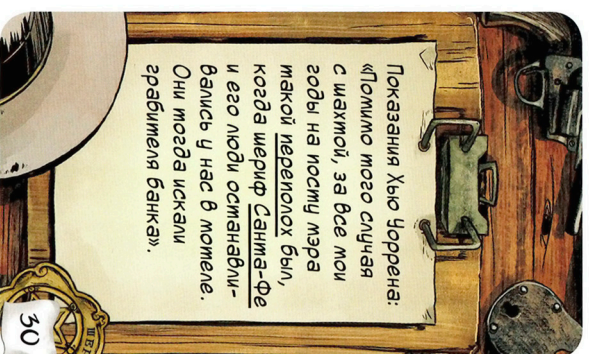 Показания Хью Уоррена:
«Помимо того случая
с шахтой, за все мои
годы на посту мэра
такой переполох был,
когда шериф Санта-Фе
и его люди останавли-
вались у нас в мотеле.
Они тогда искали
грабителя банка».
30
ШЕ